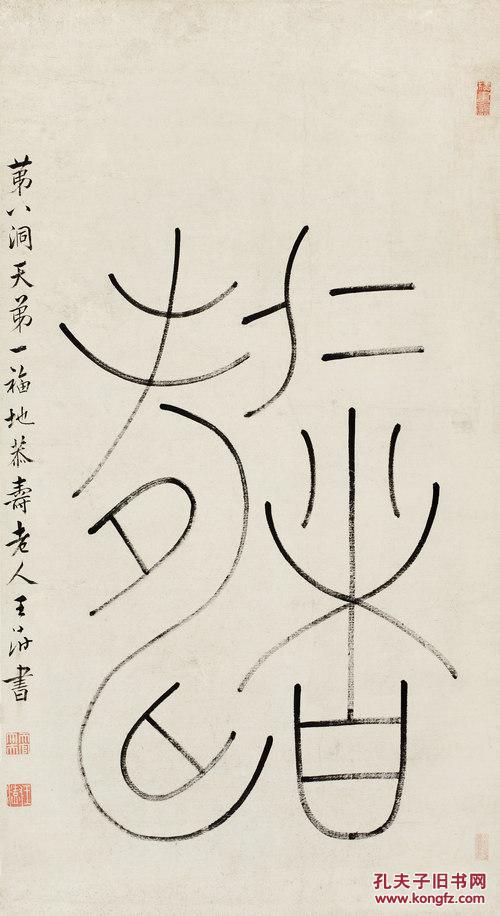 仁者
壽
苐八洞天苐一福地恭壽老人王澍書
孔夫子旧书网
www.kongfz.com